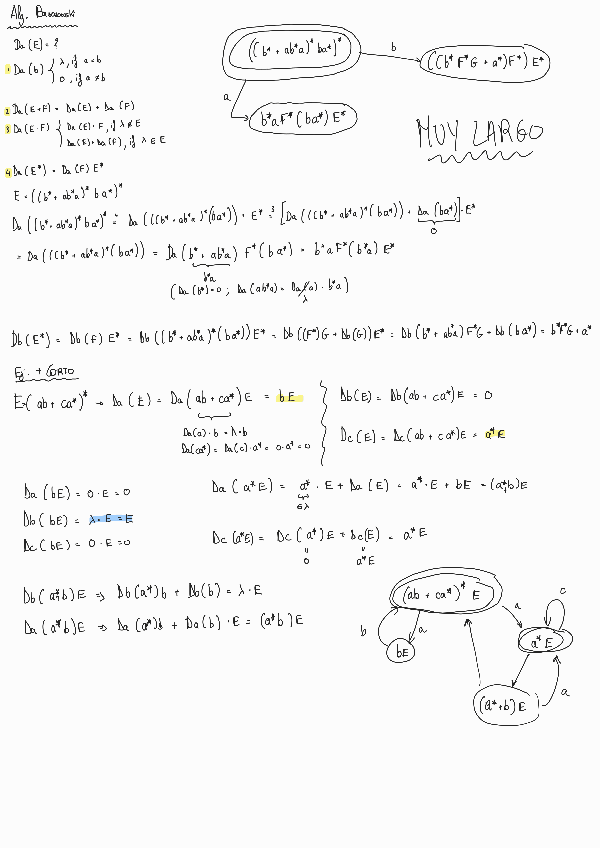 Alg. Barzowski
Da(E) = ?
1 Da(b) { λ, if a=b
0, if a≠b
2 Da(E+F) = Da(E) + Da(F)
3 Da(E·F) { Da(E)·F, if λ∉E
Da(E)+Da(F), if λ∈E
4 Da(E*) = Da(F)E*
E = ((b* + ab*a)* ba*)*
((b* + ab*a)* ba*)*
b
((b*F*G + a*)F*)E*
a
b*aF*(ba*)E*
MUY LARGO
Da((b* + ab*a)* ba*)* = Da(((b* + ab*a)*(ba*)) · E* =³ [Da(((b* + ab*a)*(ba*)) + Da(ba*)]·E*
0
= Da(((b* + ab*a)*(ba*)) = Da(b* + ab*a) F*(ba*) = b*aF*(b*a)E*
b*a
(Da(b*)=0; Da(ab*a) = Da(a)·b*a)
λ
Db(E*) = Db(F)E* = Db((b* + ab*a)*(ba*))E* = Db((F*)G + Db(G))E* = Db(b* + ab*a)F*G + Db(ba*) = b*F*G + a*
Ej. + CORTO
E=(ab + ca*)* → Da(E) = Da(ab + ca*)E = bE
Da(a)·b = λ·b
Da(ca*) = Da(c)·a* = 0·a* = 0
Db(E) = Db(ab + ca*)E = 0
Dc(E) = Dc(ab + ca*)E = a*E
Da(bE) = 0·E = 0
Db(bE) = λ·E = E
Dc(bE) = 0·E = 0
Da(a*E) = a*·E + Da(E) = a*·E + bE = (a*+b)E
∈λ
Dc(a*E) = Dc(a*)E + Dc(E) = a*E
0
a*E
Db(a*+b)E ⇒ Db(a*)b + Db(b) = λ·E
Da(a*b)E ⇒ Da(a*)b + Da(b)·E = (a*b)E
(ab + ca*)*E
a
c
b
a
bE
a*E
(a*+b)E
a